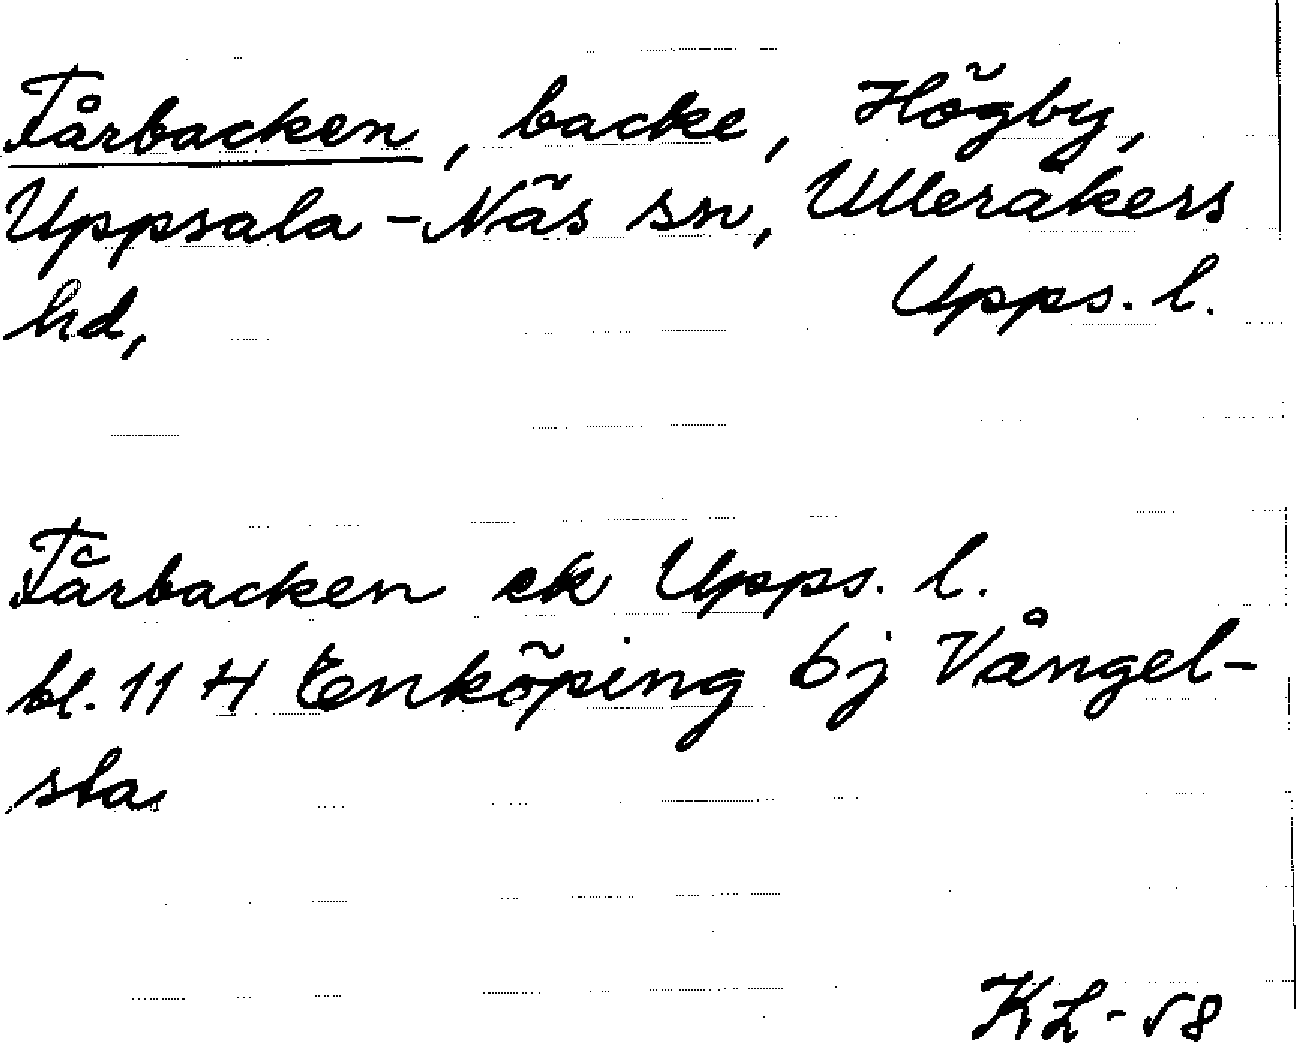 Fårbacken, backe, Högby,
Uppsala-Näs sn, Ulleråkers
hd, Upps. l.
Fårbacken ek Upps. l.
bl. 114 Enköping 6j Vångel-
sta
KL-58